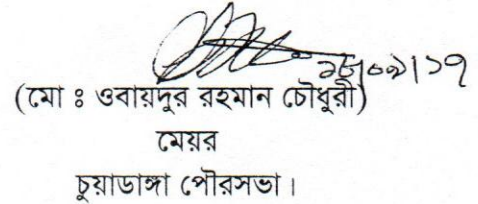 (মো ঃ ওবায়দুর রহমান চৌধুরী)
মেয়র
চুয়াডাঙ্গা পৌরসভা।